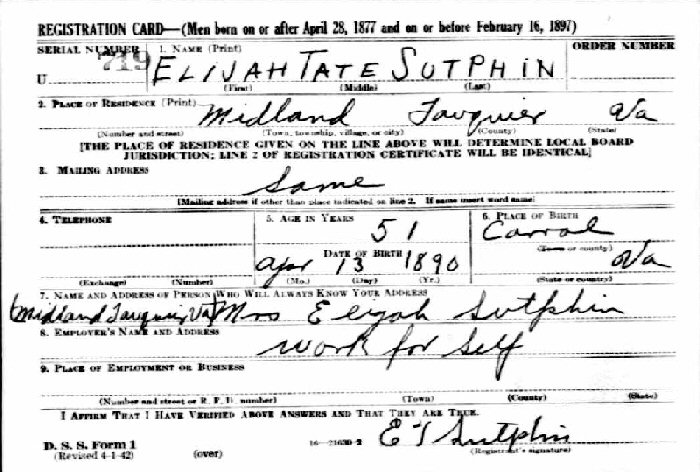 REGISTRATION CARD—(Men born on or after April 28, 1877 and on or before February 16, 1897)
SERIAL NUMBER 1. NAME (Print) ORDER NUMBER
U 719 ELIJAH TATE SUTPHIN
(First) (Middle) (Last)
2. PLACE OF RESIDENCE (Print)
Midland Fauquier Va
(Number and street) (Town, township, village, or city) (County) (State)
[THE PLACE OF RESIDENCE GIVEN ON THE LINE ABOVE WILL DETERMINE LOCAL BOARD
JURISDICTION; LINE 2 OF REGISTRATION CERTIFICATE WILL BE IDENTICAL]
3. MAILING ADDRESS
Same
[Mailing address if other than place indicated on line 2. If same insert word same]
4. TELEPHONE 5. AGE IN YEARS 6. PLACE OF BIRTH
51 Carral
DATE OF BIRTH (Town or county)
Apr 13 1890 Va
(Exchange) (Number) (Mo.) (Day) (Yr.) (State or country)
7. NAME AND ADDRESS OF PERSON WHO WILL ALWAYS KNOW YOUR ADDRESS
(Midland Fauquier Va) Mrs Elijah Sutphin
8. EMPLOYER'S NAME AND ADDRESS
Work for Self
9. PLACE OF EMPLOYMENT OR BUSINESS
(Number and street or R. F. D. number) (Town) (County) (State)
I AFFIRM THAT I HAVE VERIFIED ABOVE ANSWERS AND THAT THEY ARE TRUE.
D. S. S. Form 1 E T Sutphin
(Revised 4-1-42) (over) 16—21630-2 (Registrant's signature)